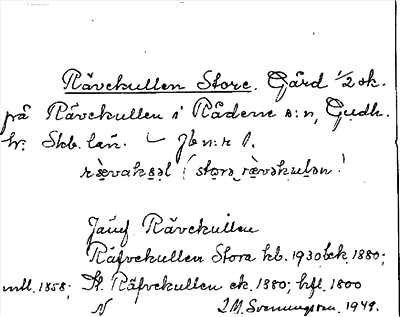 Rävekullen Store. Gård 1/2 sk.
på Rävekullen i Rådene s:n, Gudh.
hr. Skb. län. – Jb n:r 1.
Jämf Rävekullen
Räfvekullen Stora kb. 1930 bek. 1880;
mtl. 1858; St. Räfvekullen ek. 1880; hfl. 1800
N I.M. Svenningson. 1949.